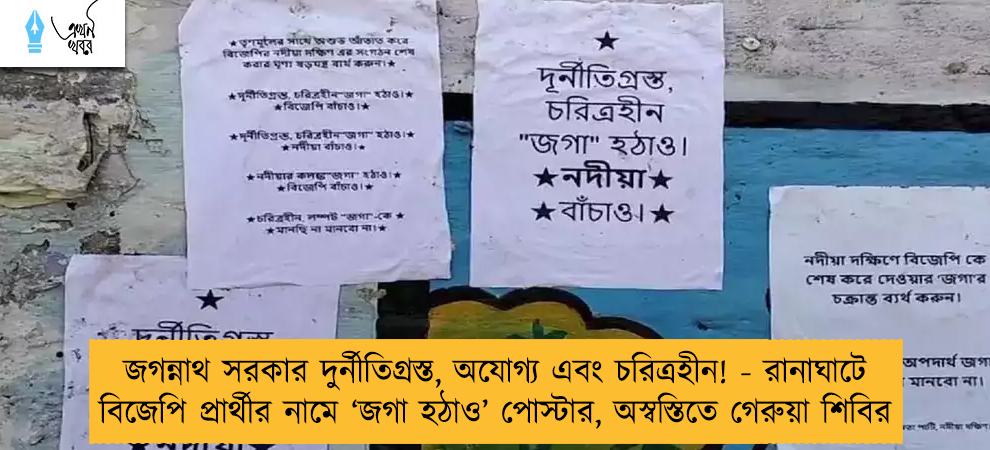 এখন
খবর
★তৃণমূলের সাথে অশুভ আঁতাত করে
বিজেপির নদীয়া দক্ষিণ এর সংগঠন শেষ
করার ঘৃণ্য ষড়যন্ত্র ব্যর্থ করুন।★
★দূর্নীতিগ্রস্ত, চরিত্রহীন"জগা" হঠাও।★
★বিজেপি বাঁচাও।★
★দূর্নীতিগ্রস্ত, চরিত্রহীন"জগা" হঠাও।★
★নদীয়া বাঁচাও।★
★নদীয়ার কলঙ্ক"জগা" হঠাও।★
★বিজেপি বাঁচাও।★
★চরিত্রহীন, লম্পট "জগা"-কে ★
★মানছি না মানবো না।★
★
দূর্নীতিগ্রস্ত,
চরিত্রহীন
"জগা" হঠাও।
★নদীয়া★
★বাঁচাও।★
নদীয়া দক্ষিণে বিজেপি কে
শেষ করে দেওয়ার 'জগা'র
চক্রান্ত ব্যর্থ করুন।
অপদার্থ জগা
মানবো না।
পার্টি, নদীয়া দক্ষিণ
★
দূর্নীতিগ্রস্ত
জগন্নাথ সরকার দুর্নীতিগ্রস্ত, অযোগ্য এবং চরিত্রহীন! - রানাঘাটে
বিজেপি প্রার্থীর নামে ‘জগা হঠাও’ পোস্টার, অস্বস্তিতে গেরুয়া শিবির
★নদীয়া★